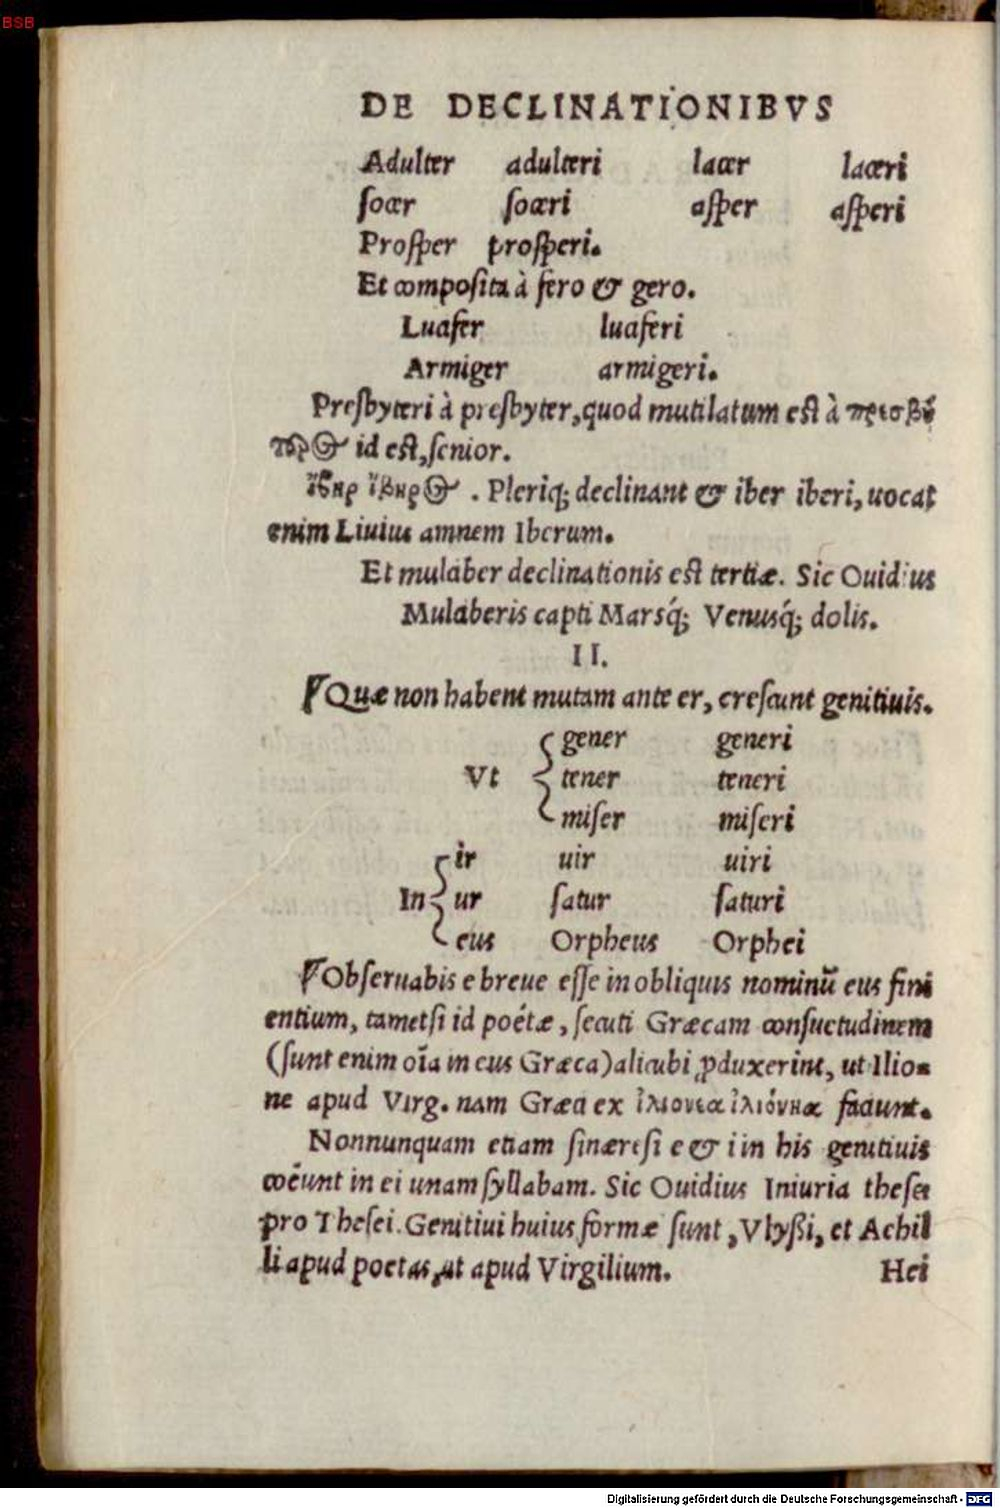 BSB
DE DECLINATIONIBVS
Adulter adulteri lacer laceri
ſocer ſoceri aſper aſperi
Proſper proſperi.
Et compoſita à fero & gero.
Lucifer luciferi
Armiger armigeri.
Preſbyteri à preſbyter, quod mutilatum eſt à πρεσβύ
τερος id eſt, ſenior.
ἴβηρ ἴβηρος. Pleriq; declinant & iber iberi, uocat
enim Liuius amnem Iberum.
Et mulciber declinationis eſt tertiæ. Sic Ouidius
Mulciberis capti Marsq́; Venusq́; dolis.
II.
Quæ non habent mutam ante er, creſcunt genitiuis.
Vt gener generi
tener teneri
miſer miſeri
ir uir uiri
In ur ſatur ſaturi
eus Orpheus Orphei
Obſeruabis e breue eſſe in obliquis nominū eus fini
entium, tametſi id poëtæ, ſecuti Græcam conſuetudinem
(ſunt enim oīa in eus Græca) alicubi ꝓduxerint, ut Ilio-
ne apud Virg. nam Græci ex ἰλιονέα ἰλιόνηα faciunt.
Nonnunquam etiam ſinæreſi e & i in his genitiuis
coëunt in ei unam ſyllabam. Sic Ouidius Iniuria theſei
pro Theſei. Genitiui huius formæ ſunt, Vlyßi, et Achil
li apud poetas, ut apud Virgilium. Hei
Digitalisierung gefördert durch die Deutsche Forschungsgemeinschaft - DFG